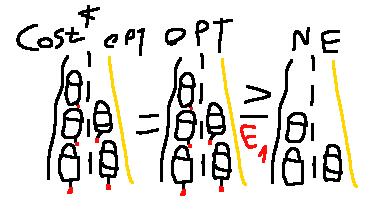 Cost* OPT OPT NE
= ≥
E1